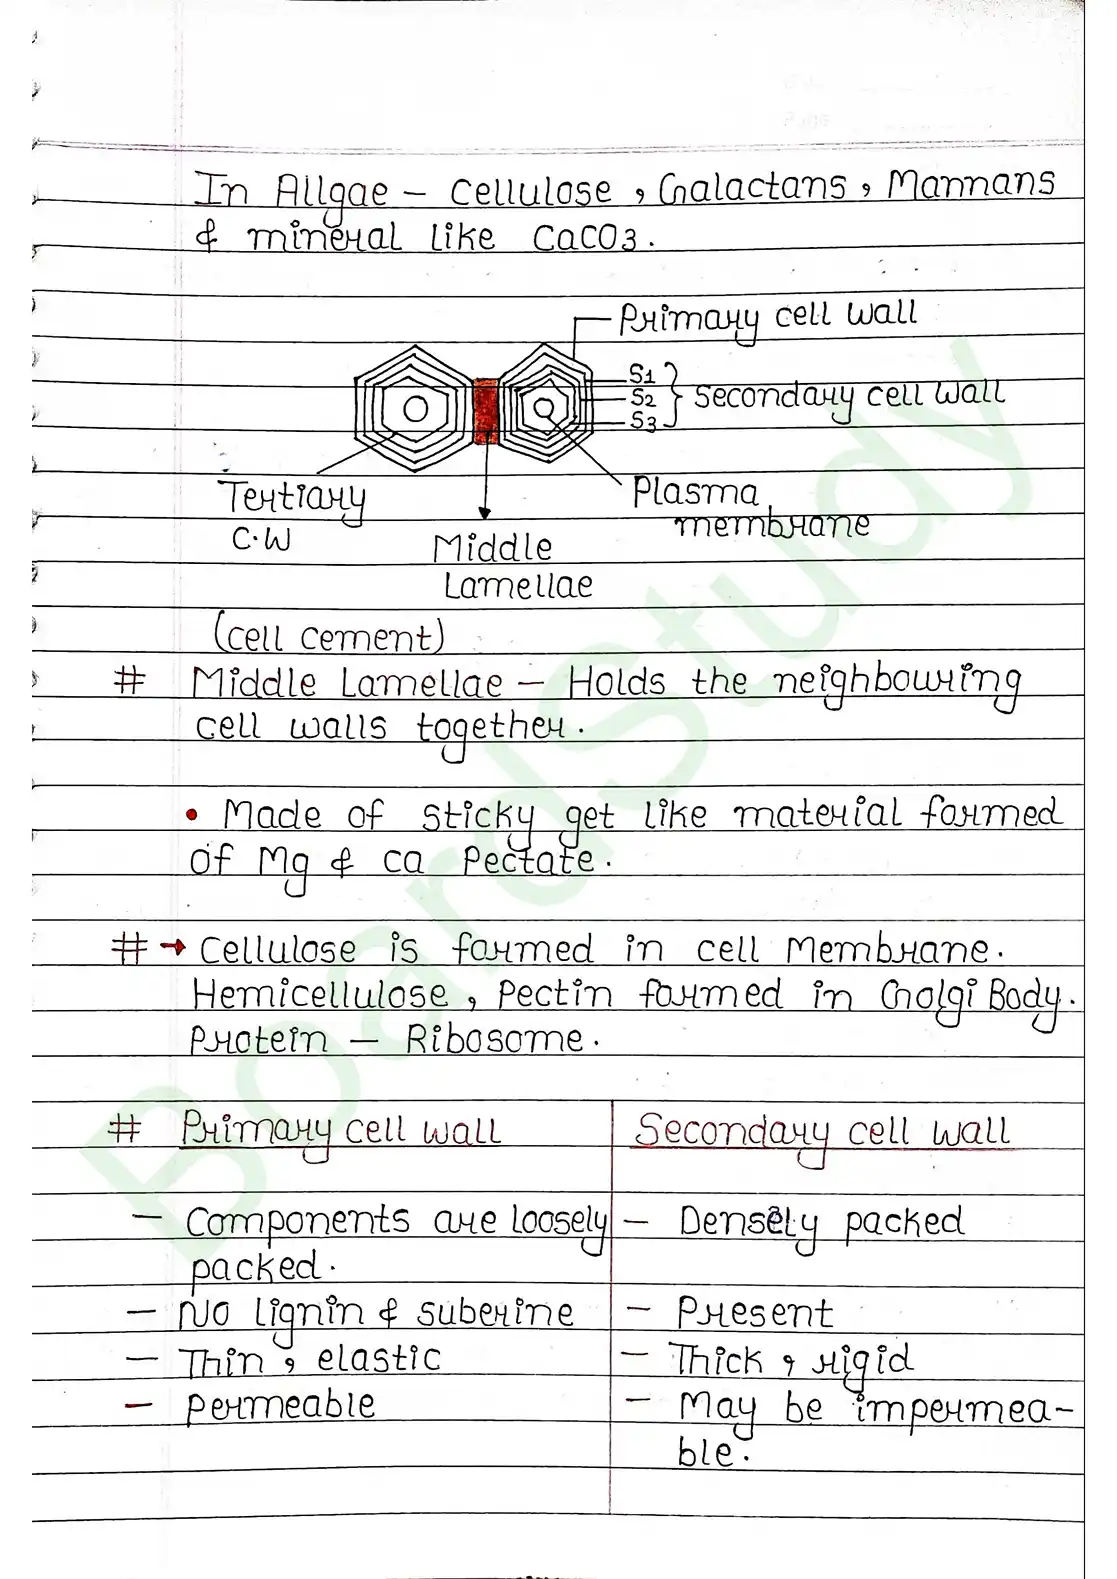 In Allgae - Cellulose, Galactans, Mannans
& mineral like CaCO3.
Primary cell wall
S1
S2
S3
Secondary cell wall
Tertiary
C.W
Plasma
membrane
Middle
Lamellae
(cell cement)
# Middle Lamellae - Holds the neighbouring
cell walls together.
• Made of sticky get like material formed
of Mg & ca Pectate.
# → Cellulose is formed in cell Membrane.
Hemicellulose, Pectin formed in Golgi Body.
Protein - Ribosome.
# Primary cell wall
Secondary cell wall
- Components are loosely
packed.
- Densely packed
- No lignin & suberine
- Present
- Thin, elastic
- Thick, rigid
- permeable
- May be impermea-
ble.
BoardStudy